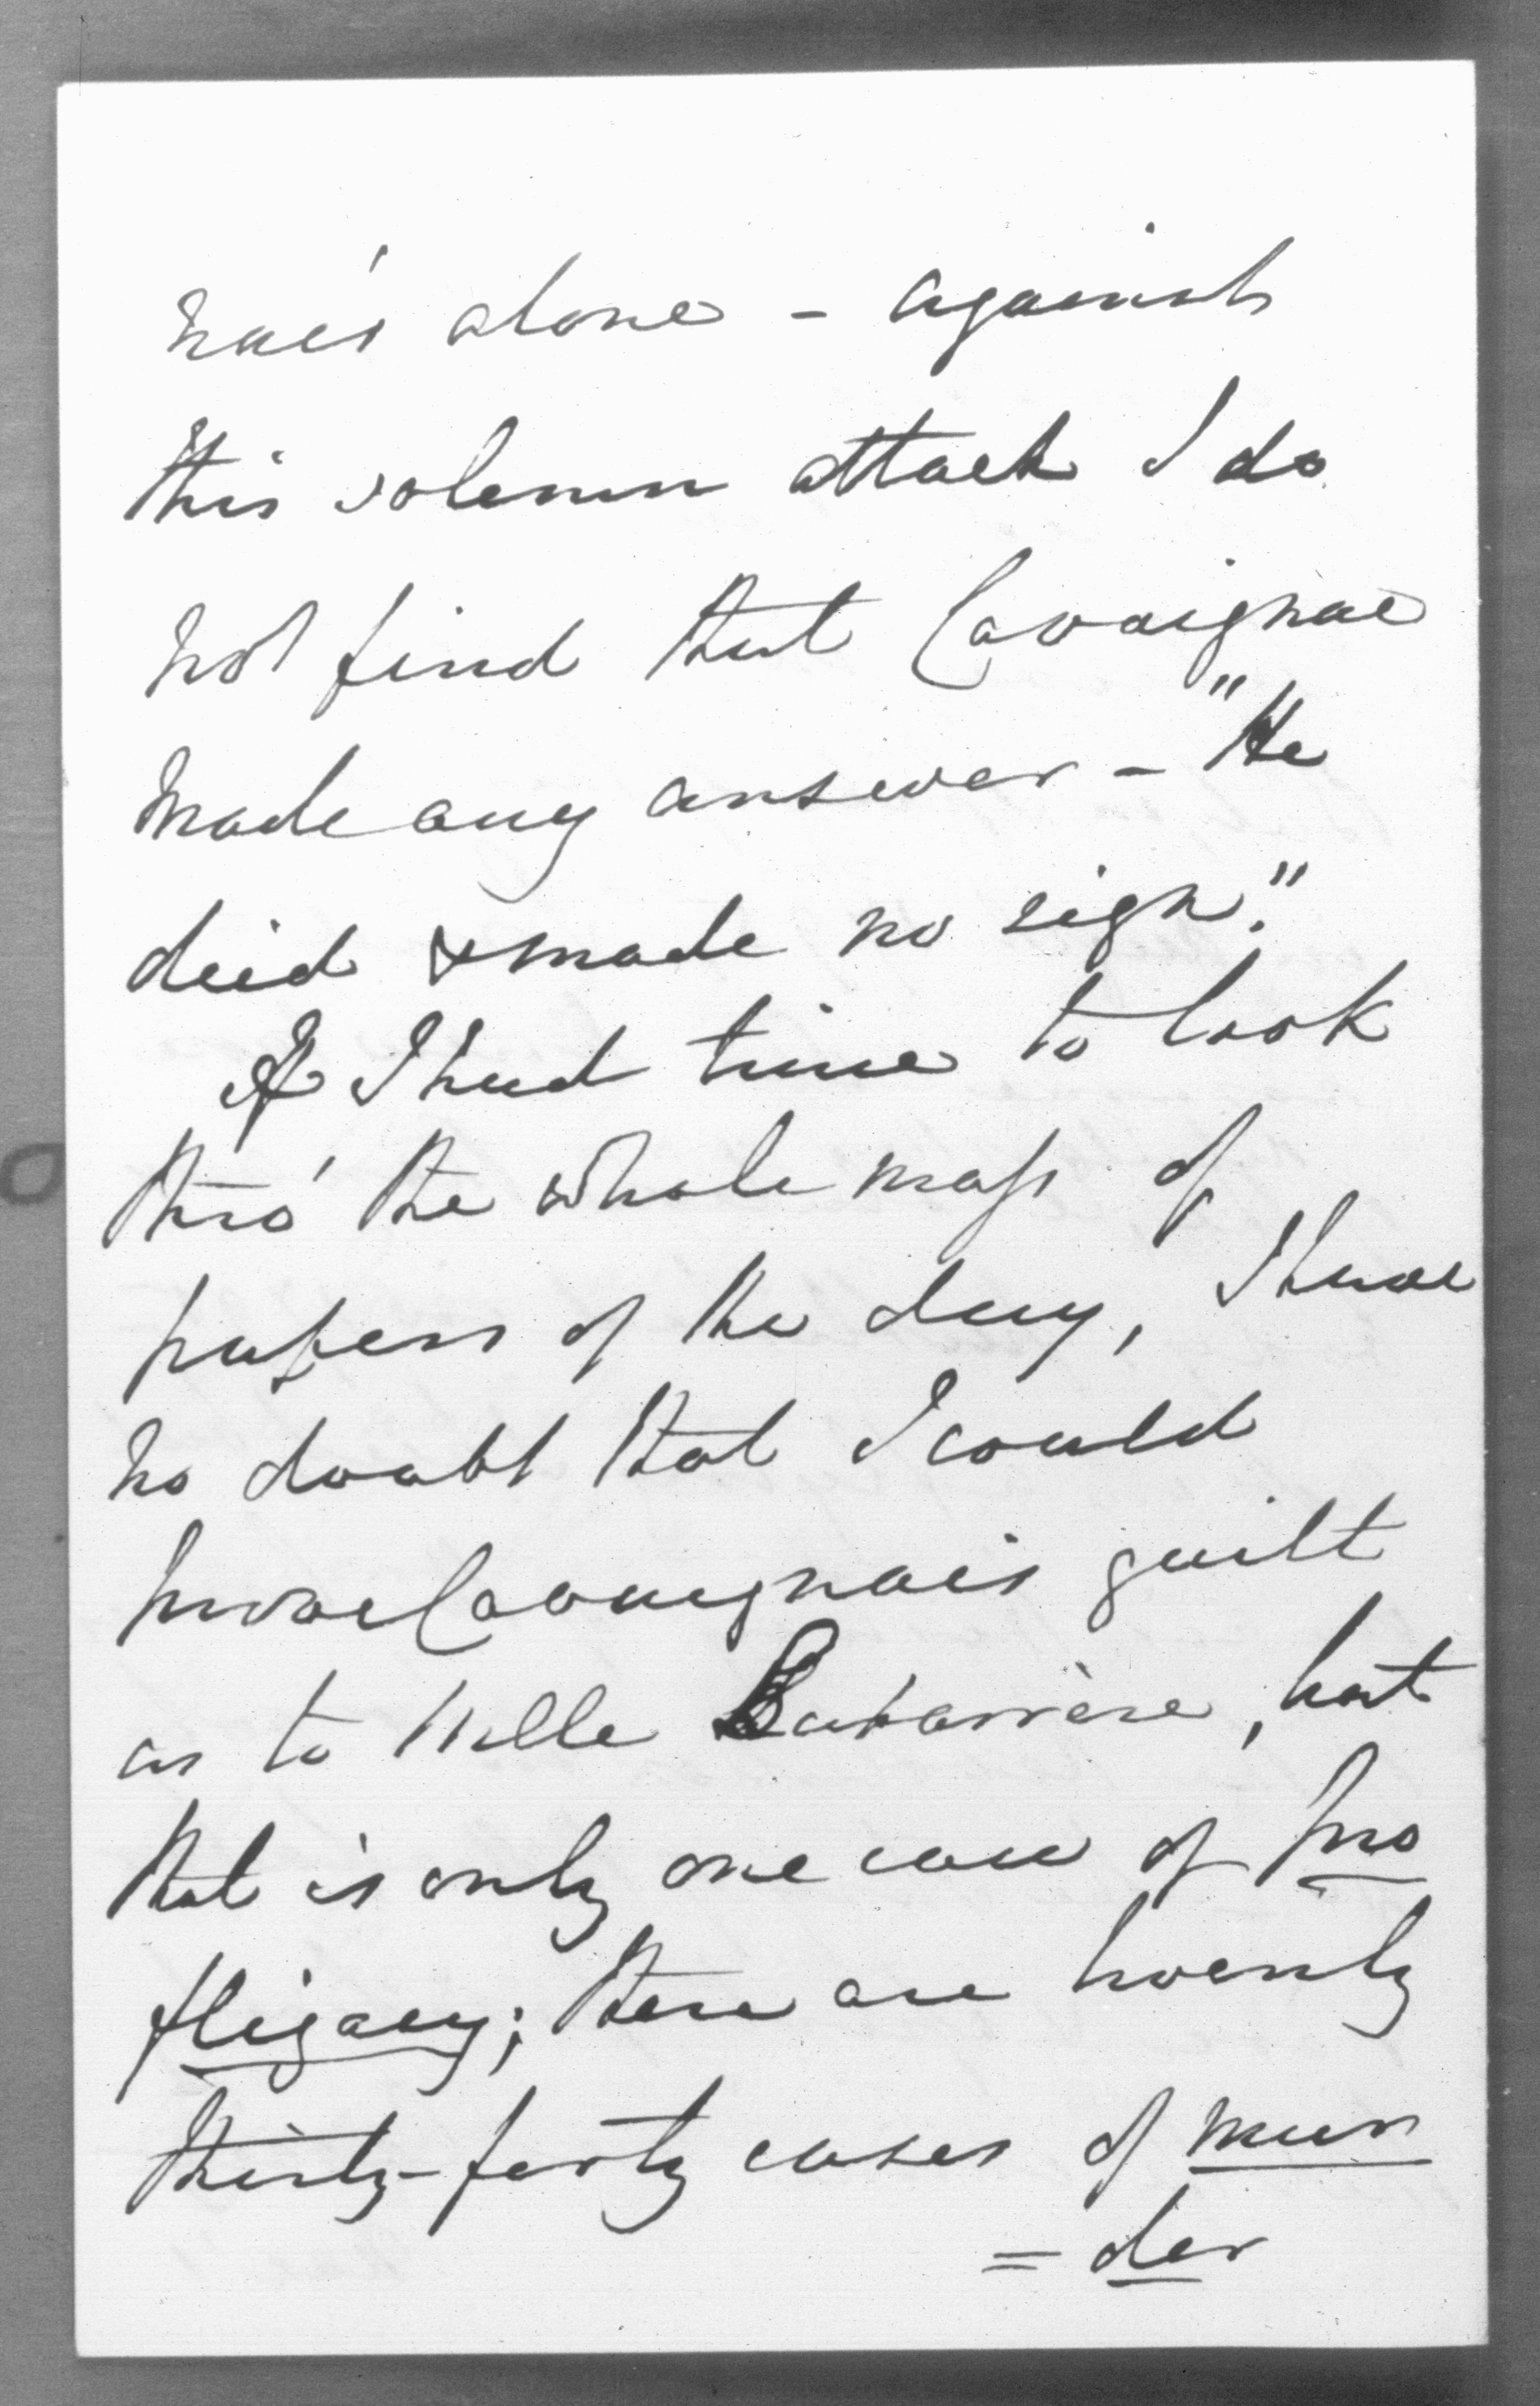 nac's alone - against
this solemn attack I do
not find that Cavaignac
made any answer - "He
died & made no sign."
If I had time to look
thro' the whole mass of
papers of the day, I have
no doubt that I could
prove Cavaignac's guilt
as to Melle Labarrère, but
that is only one case of pro
fligacy; there are twenty
thirty - forty cases of mur
= der